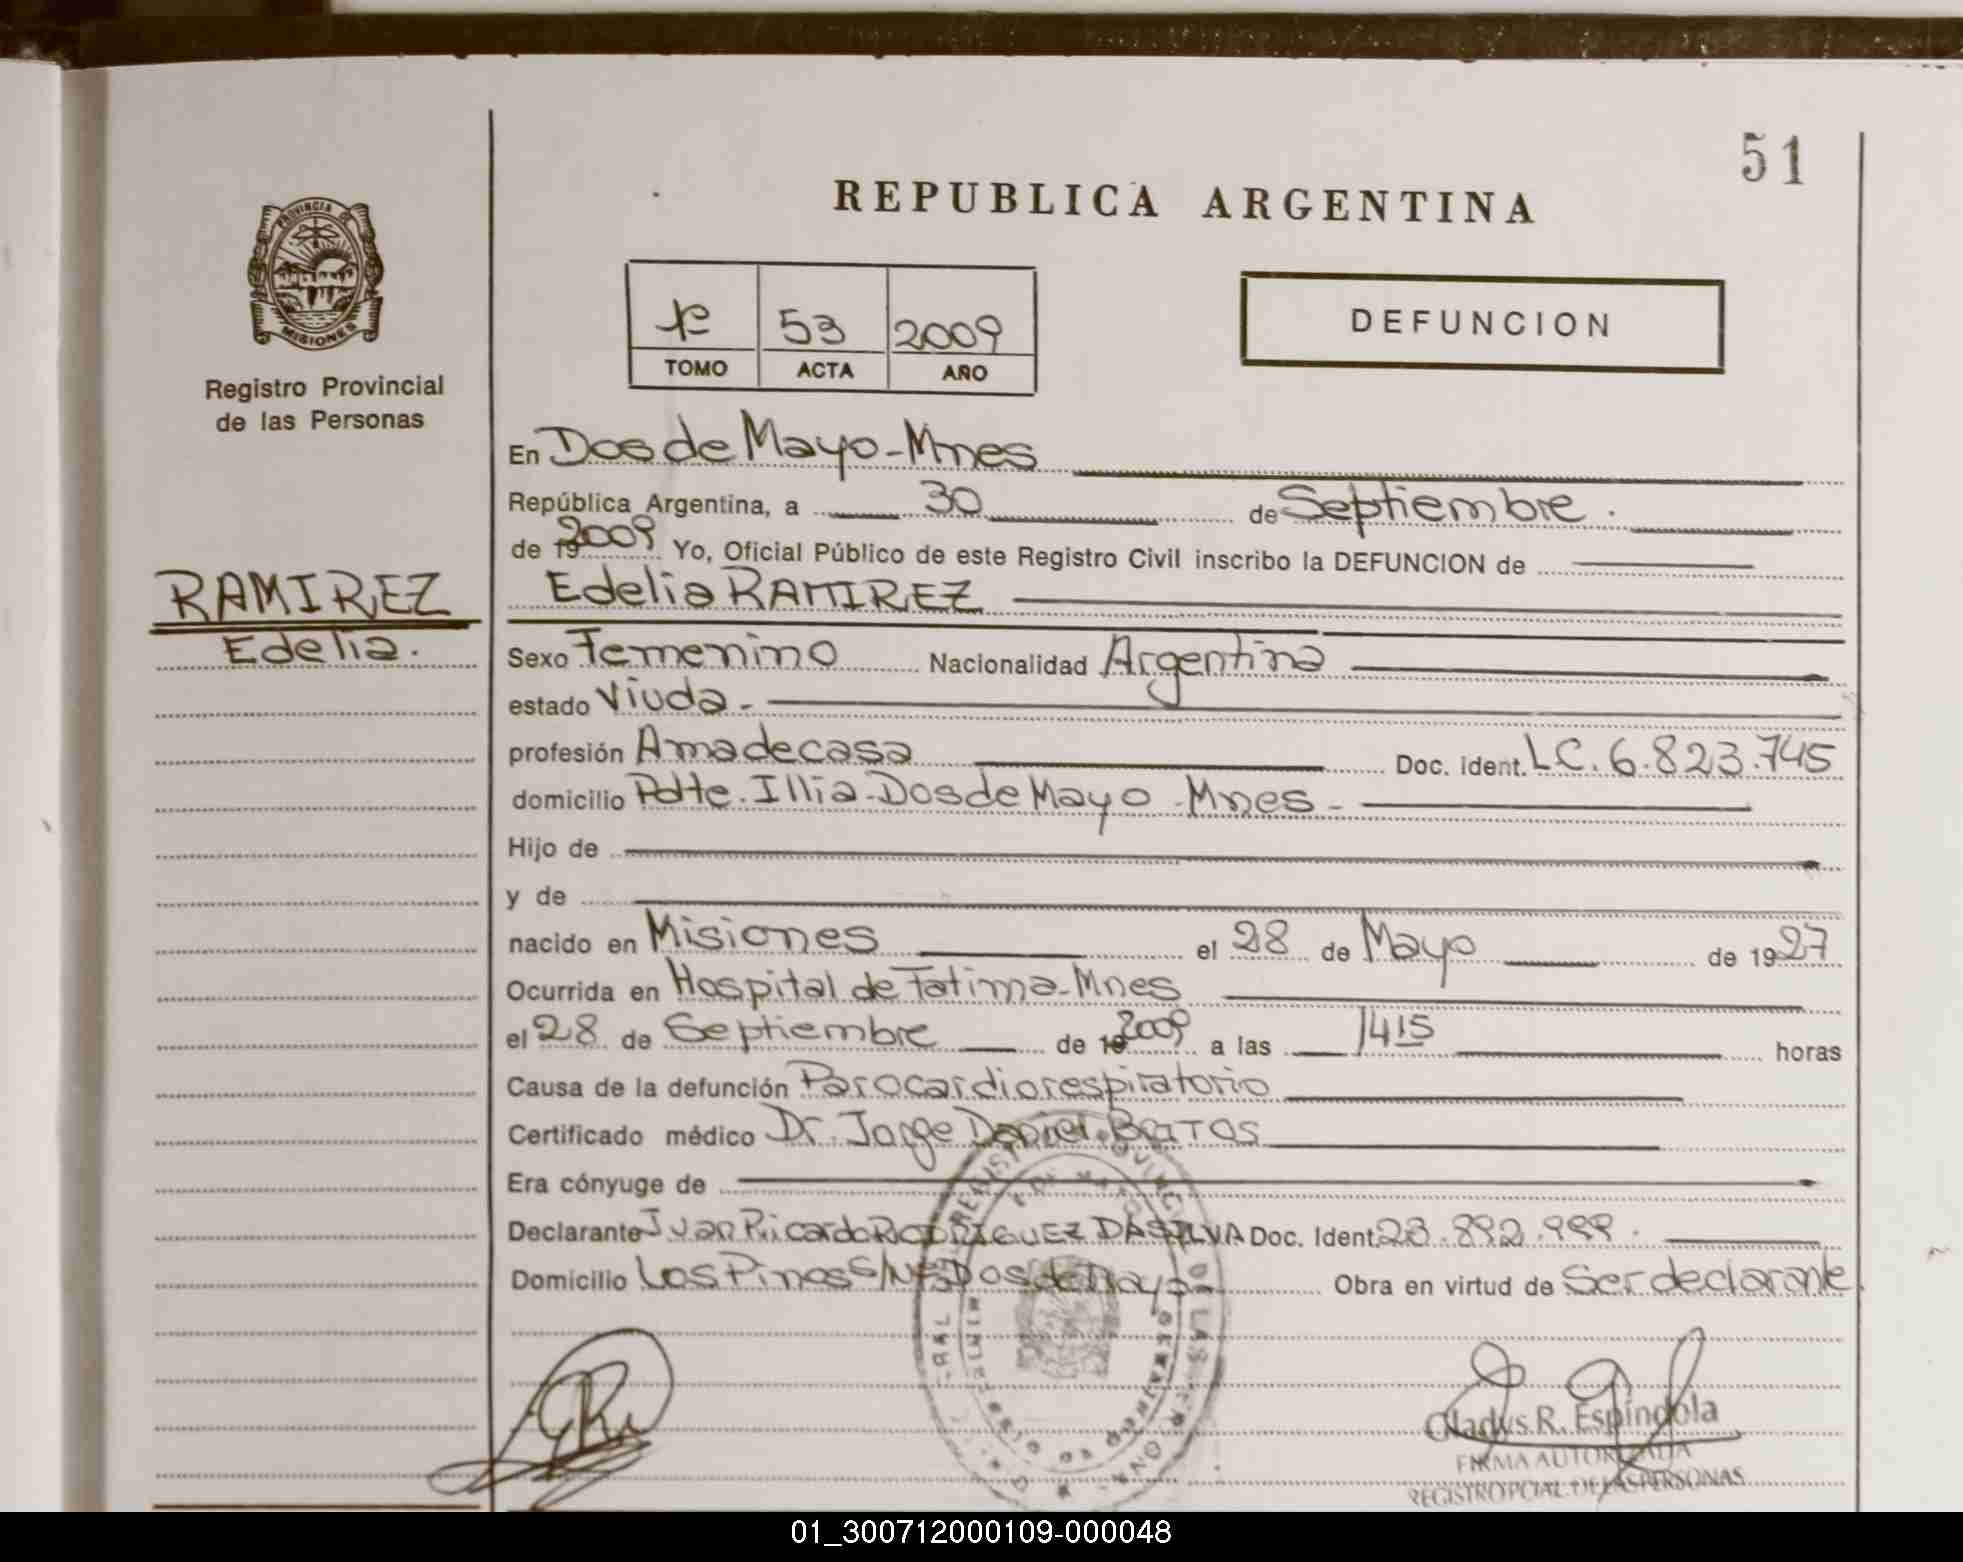 51
REPUBLICA ARGENTINA
PROVINCIA DE
MISIONES
Registro Provincial
de las Personas
1º 53 2009
TOMO ACTA AÑO
DEFUNCION
En Dos de Mayo - Mnes
República Argentina, a 30 de Septiembre.
de 19 2009 Yo, Oficial Público de este Registro Civil inscribo la DEFUNCION de
RAMIREZ
Edelia.
Edelia RAMIREZ
Sexo Femenino Nacionalidad Argentina
estado Viuda -
profesión Ama de casa Doc. ident. LC. 6.823.745
domicilio Pdte. Illia - Dos de Mayo - Mnes -
Hijo de
y de
nacido en Misiones el 28 de Mayo de 1927
Ocurrida en Hospital de Fatima - Mnes
el 28 de Septiembre de 19 2009 a las 1415 horas
Causa de la defunción Paro cardiorespiratorio
Certificado médico Dr. Jorge Daniel
Era cónyuge de
Declarante Juan Ricardo RODRIGUEZ DASILVA Doc. Ident. 23.892.999.
Domicilio Los Pinos S/Nº Dos de Mayo - Obra en virtud de Ser declarante
Gladys R. Espíndola
FIRMA AUTORIZADA
REGISTRO PCIAL. DE LAS PERSONAS
01_300712000109-000048